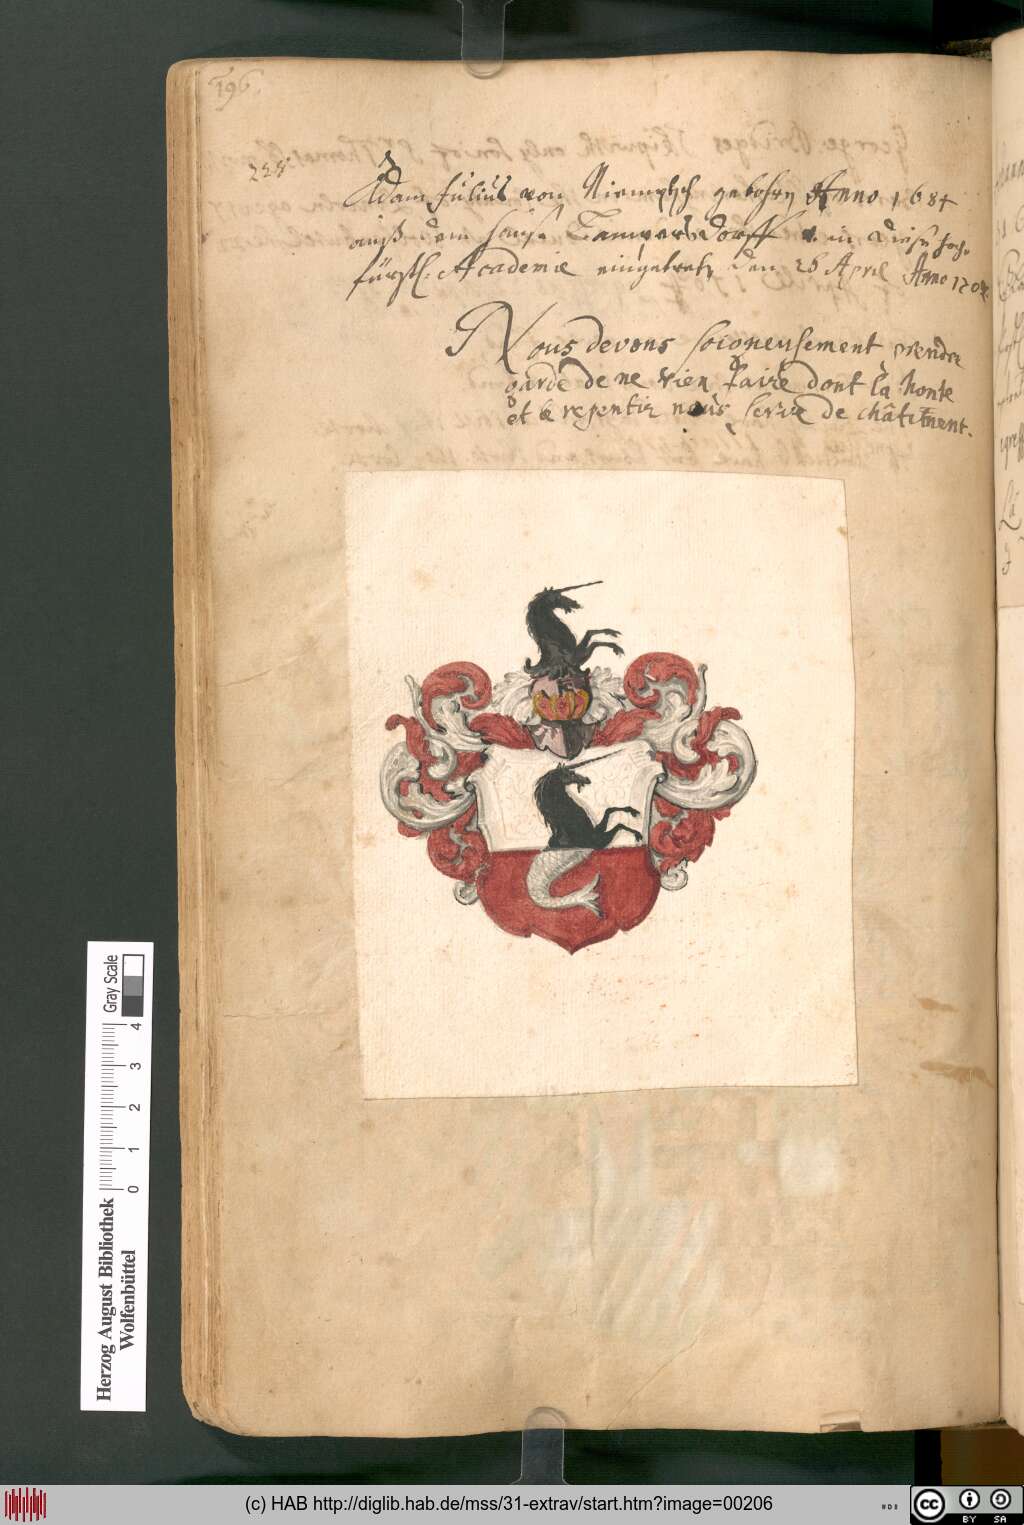 196
225.
Adam Julius von Niemptsch gebohrn Anno 1684
auß dem Hause Tampersdorff in diese hoch-
fürstl: Academie eingetretn den 28 April Anno
Nous devons soigneusement prendre
garde de ne rien faire dont la honte
et le repentir nous serve de châtiment.
Gray Scale
4
3
2
1
0
Herzog August Bibliothek
Wolfenbüttel
(c) HAB http://diglib.hab.de/mss/31-extrav/start.htm?image=00206
cc
BY SA